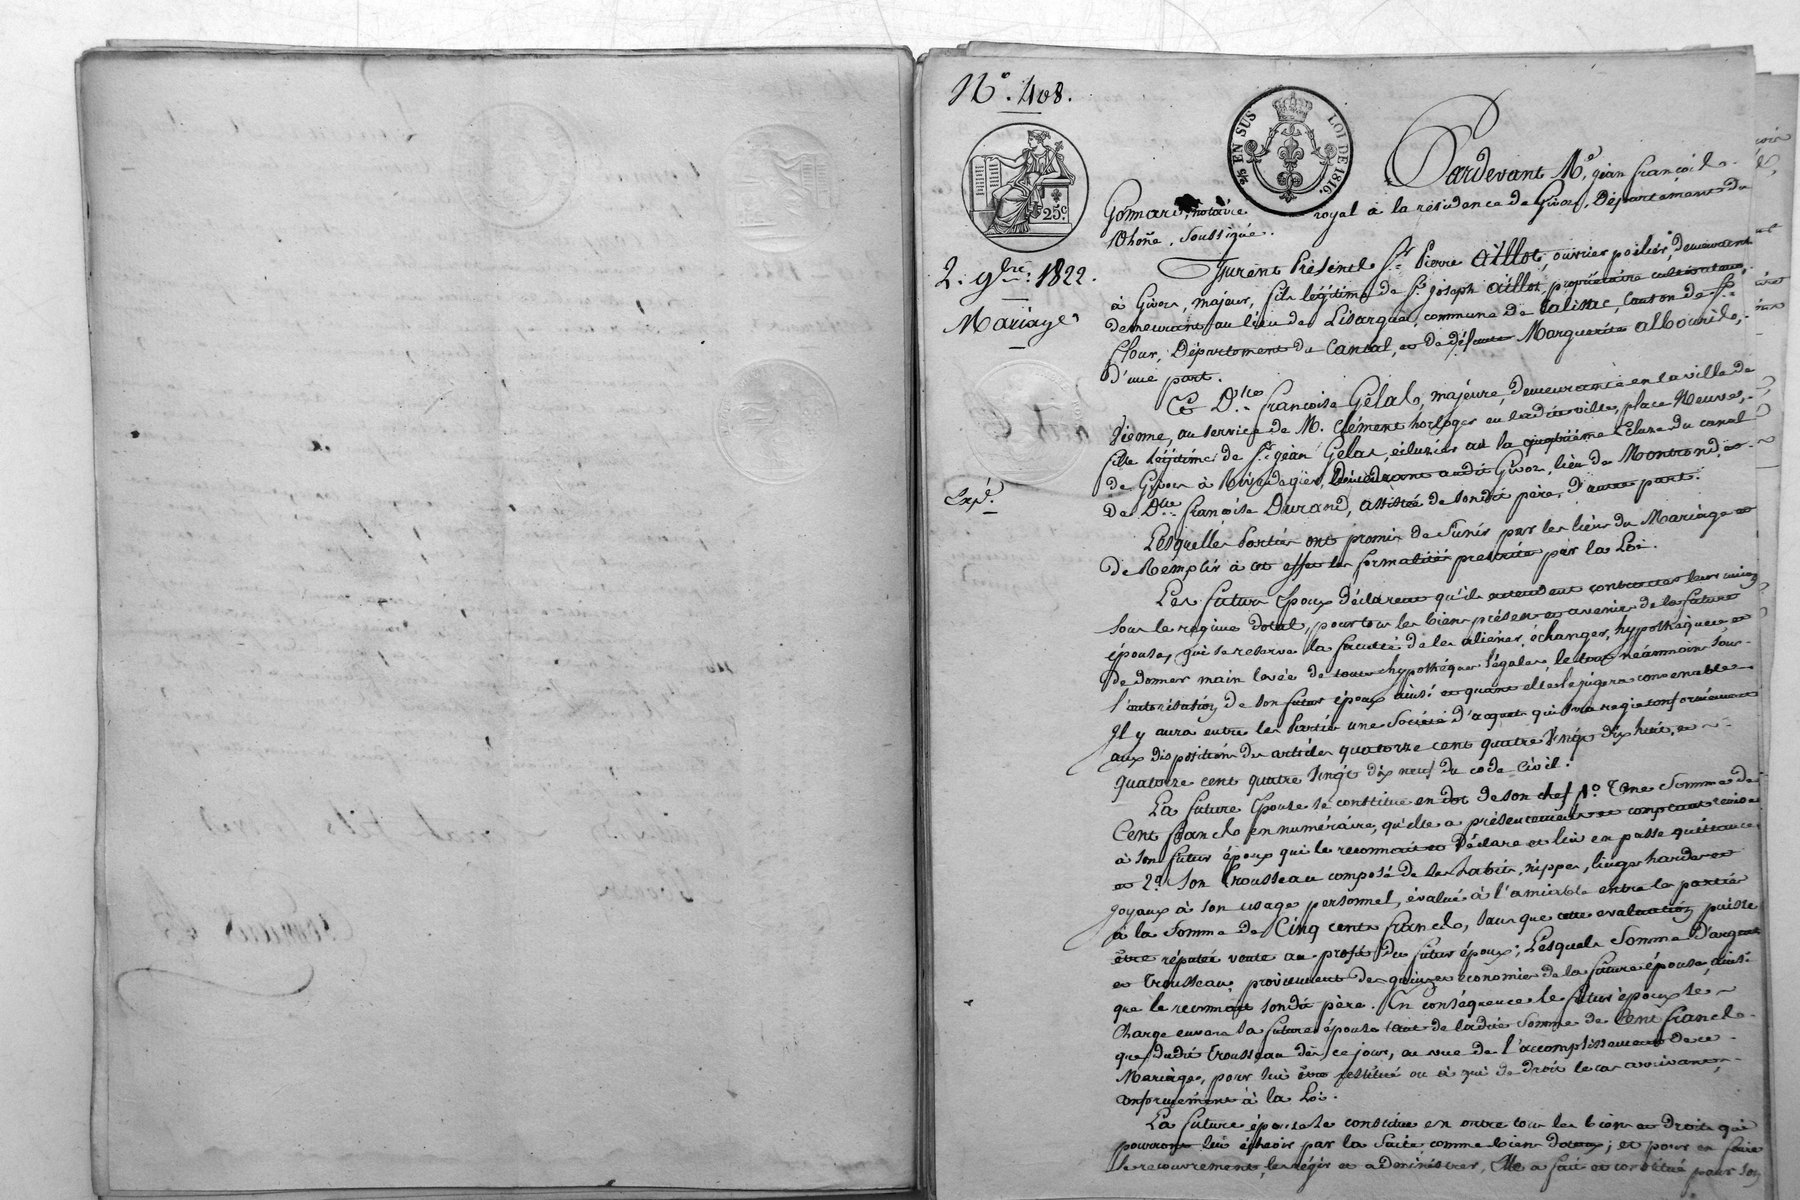 N.° 408.
25c
2⁄5 EN SUS LOI DE 1816.
2. 9bre. 1822.
Mariage
Expé.
Pardevant Me. jean françois
Gomard, notaire royal à la résidence de Givors, Département du
Rhône, soussigné.
Furent Présents Sr. Pierre aillot, ouvrier poëlier, demeurant
à Givors, majeur, fils légitime de Sr. joseph aillot, propriétaire cultivateur,
demeurant au lieu de Lisargues, commune de Talizac, Canton de St.
flour, Département du Cantal, et de défunte Marguerite albouride,
d'une part.
Et Dlle. françoise Gélas, majeure, demeurante en la ville de
Vienne, au service de M. Clément horloger en ladite ville, place Neuve,
fille légitime de Sr. jean Gelas, éclusier à la quatrième Ecluse du canal
de Givors à Rivedegier, demeurant audit Givors, lieu de Montrond, et
de Dlle. françoise Durand, assistée de sondit père, d'autre part.
Lesquelles Parties ont promis de s'unir par les liens du Mariage et
de Remplir à cet effet les formalités prescrites par la Loi.
Les futurs Epoux déclarent qu'ils entendent contracter leur union
sous le régime dotal, pour tous les biens présents et avenir de la future
épouse, qui se réserve la faculté de les aliéner, échanger, hypothéquer et
de donner main levée de toute hypothéque légale, le tout néanmoins sous
l'autorisation de son futur époux ainsi et quand elle le jugera convenable
Il y aura entre les Parties une Société d'aquets qui sera régie conformément
aux dispositions des articles quatorze cent quatre Vingt dix huit, et
quatorze cent quatre Vingt dix neuf du code Civil.
La future Epouse se constitue en dot de son chef 1.° Une Somme de
Cent francs en numéraire, qu'elle a présentement et comptant remise
à son futur époux qui le reconnait et Déclare et lui en passe quittance,
et 2.° Son Trousseau composé de ses habits, nippes, linges hardes et
joyaux à son usage personnel, évalué à l'amiable entre les parties
à la Somme de Cinq cents francs, sans que cette evaluation puisse
être réputée vente au profit du futur époux; Lesquels Somme d'argent
et Trousseau proviennent des gains et économies de la future épouse, ainsi
que le reconnait sondit père. En conséquence le futur époux se
Charge envers sa future épouse tant de ladite Somme de Cent francs
que dudit Trousseau dès ce jour, en vue de l'accomplissement de ce
Mariage, pour lui être restitué ou à qui de droit le cas arrivant,
conformément à la Loi.
La future épouse se constitue en outre tous les biens et droits qui
pourront lui échoir par la Suite comme biens dotaux; et pour en faire
le recouvrement, les régir et administrer, Elle a fait et constitué pour son